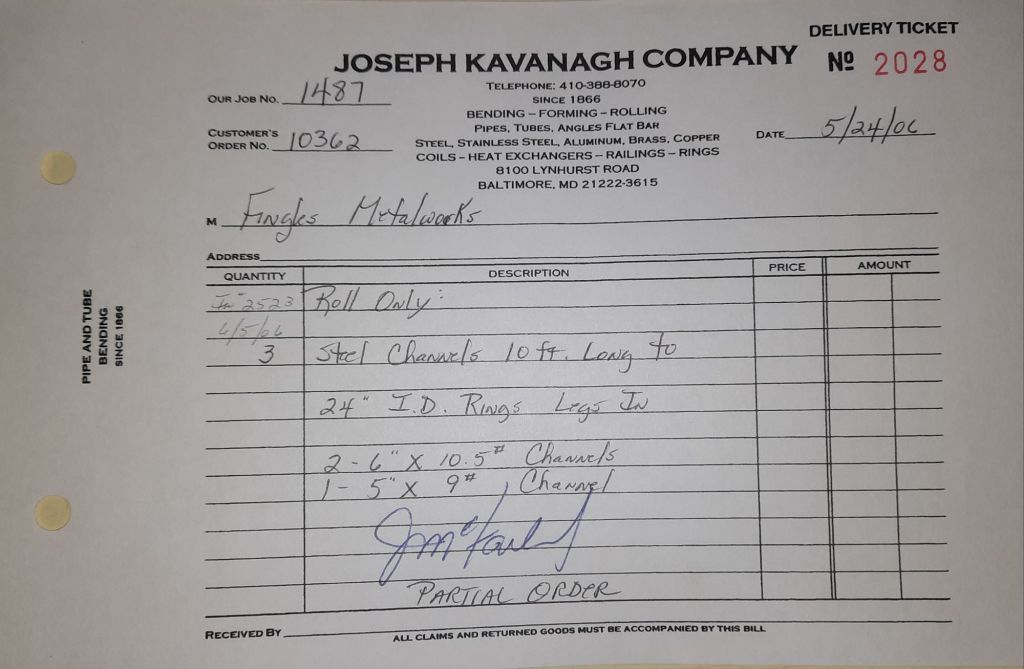 DELIVERY TICKET
JOSEPH KAVANAGH COMPANY
Nº 2028
TELEPHONE: 410-388-8070
SINCE 1866
BENDING – FORMING – ROLLING
PIPES, TUBES, ANGLES FLAT BAR
STEEL, STAINLESS STEEL, ALUMINUM, BRASS, COPPER
COILS – HEAT EXCHANGERS – RAILINGS – RINGS
8100 LYNHURST ROAD
BALTIMORE, MD 21222-3615
OUR JOB NO. 1487
CUSTOMER'S
ORDER NO. 10362
DATE 5/24/06
M Fingles Metalworks
ADDRESS
QUANTITY DESCRIPTION PRICE AMOUNT
2523 Roll Only:
6/5/06
3 Steel Channels 10 ft. Long to
24" I.D. Rings Legs In
2 - 6" X 10.5# Channels
1 - 5" X 9# Channel
PARTIAL ORDER
RECEIVED BY
ALL CLAIMS AND RETURNED GOODS MUST BE ACCOMPANIED BY THIS BILL
PIPE AND TUBE
BENDING
SINCE 1866